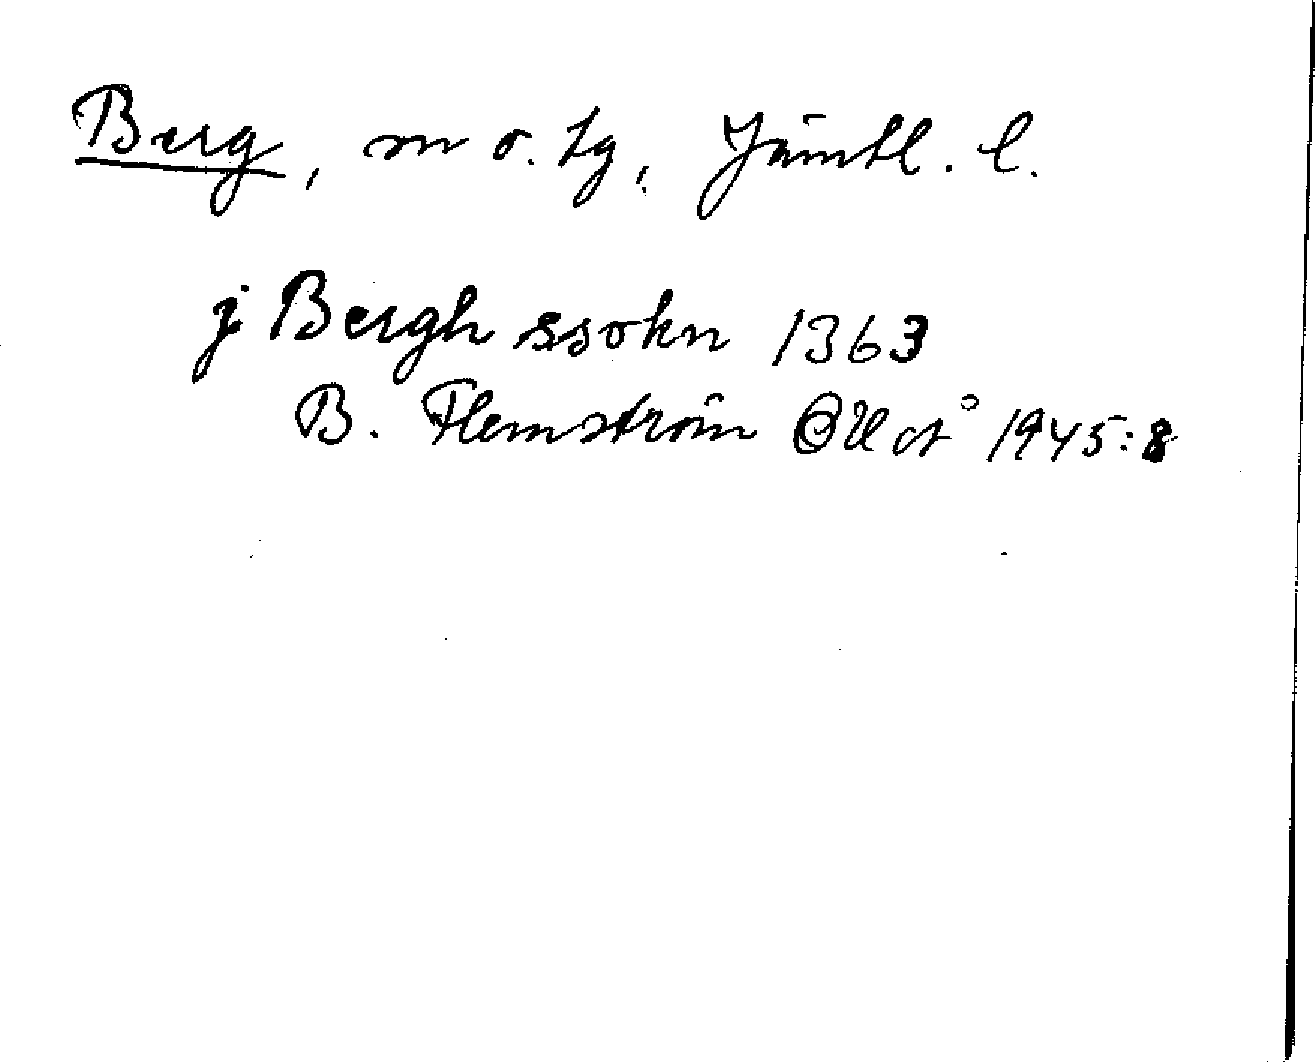 Berg, sn o. tg, Jämtl. l.
j Bergh ssokn 1363
B. Flemström OUÅ 1945:8